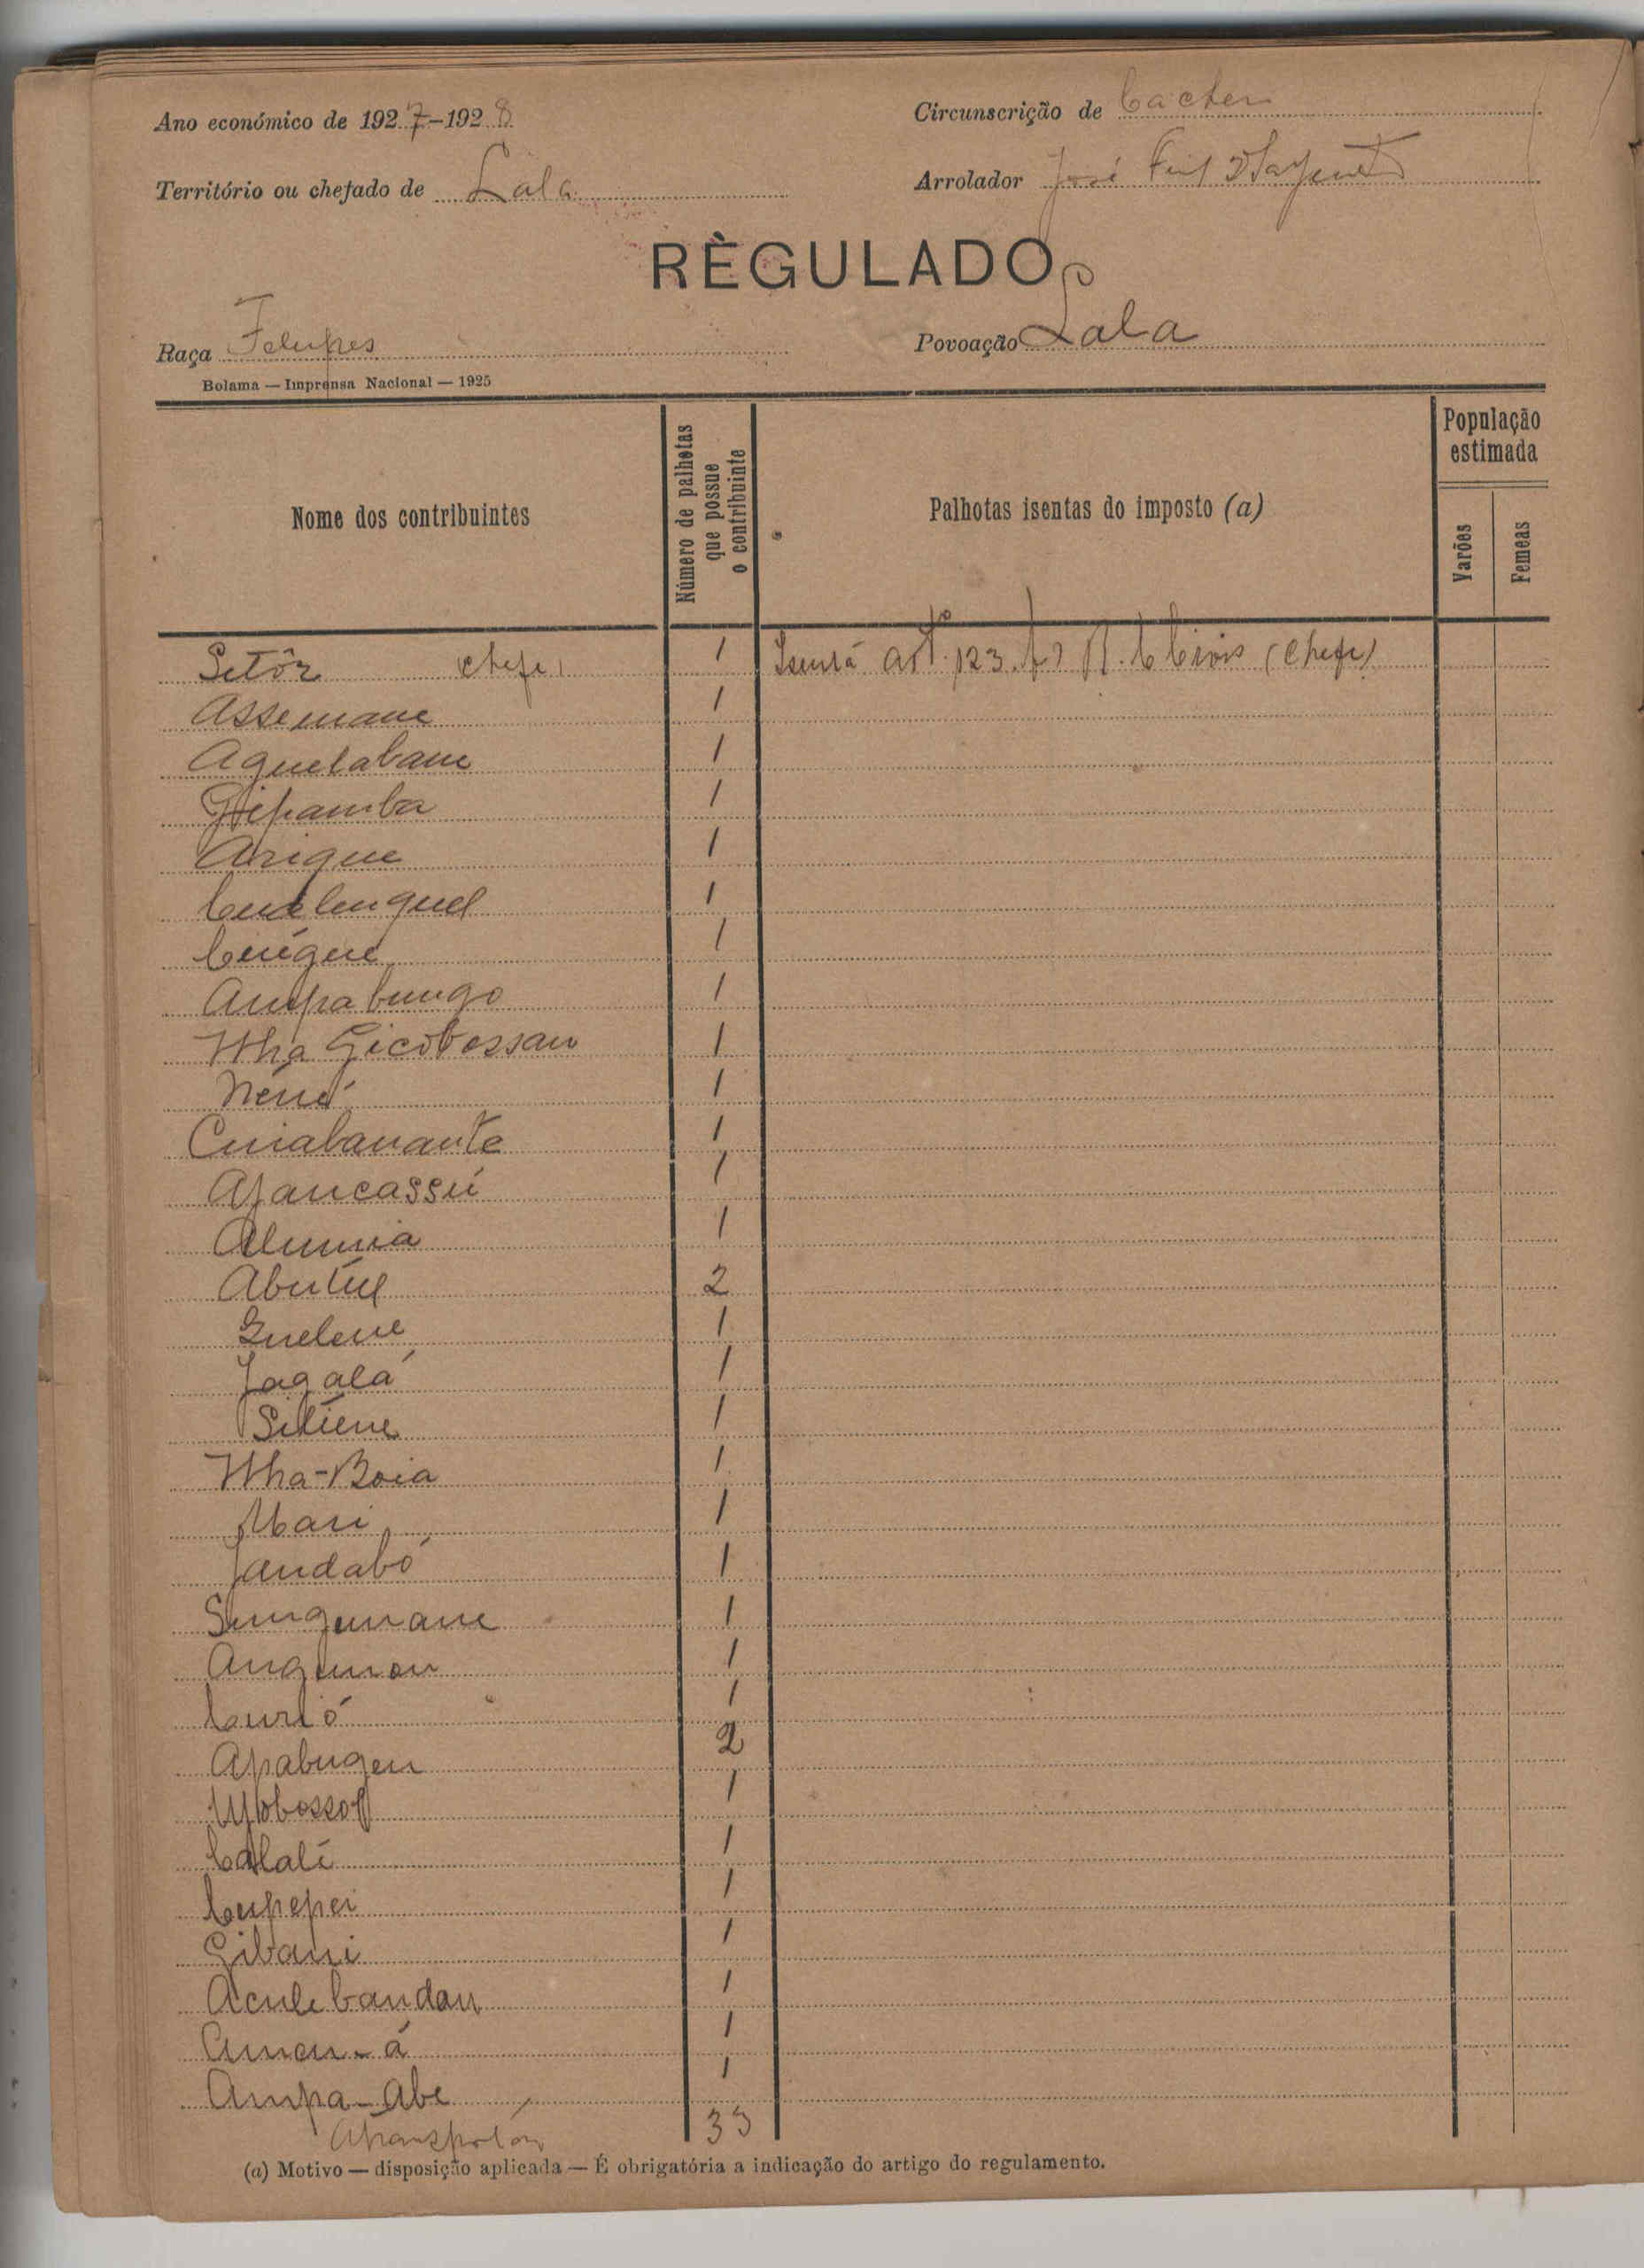 Ano económico de 1927-1928
Circunscrição de Cacheu
Território ou chefado de Lala
Arrolador José
RÈGULADO
Raça Felupes
Povoação Lala
Bolama — Imprensa Nacional — 1925
Nome dos contribuintes
Número de palhotas que possue o contribuinte
Palhotas isentas do imposto (a)
População estimada
Varões
Femeas
Setôr (chefe) 1 Isenta artº 123 (chefe)
Assemane 1
Aguelabane 1
1
Arigue 1
1
1
Ampabungo 1
Nha Gicobossau 1
Néné 1
Cuiabanante 1
Ajancassú 1
Alumia 1
Abutúl 2
Guelene 1
Jagalá 1
Sitiene 1
Nha-Boia 1
Mari 1
Jandabó 1
Sungunane 1
1
Curió 1
Apabugeu 2
1
Calalí 1
Cupepei 1
Gibani 1
Aculibandau 1
1
Ampa-Abe 1
33
(a) Motivo — disposição aplicada — É obrigatória a indicação do artigo do regulamento.